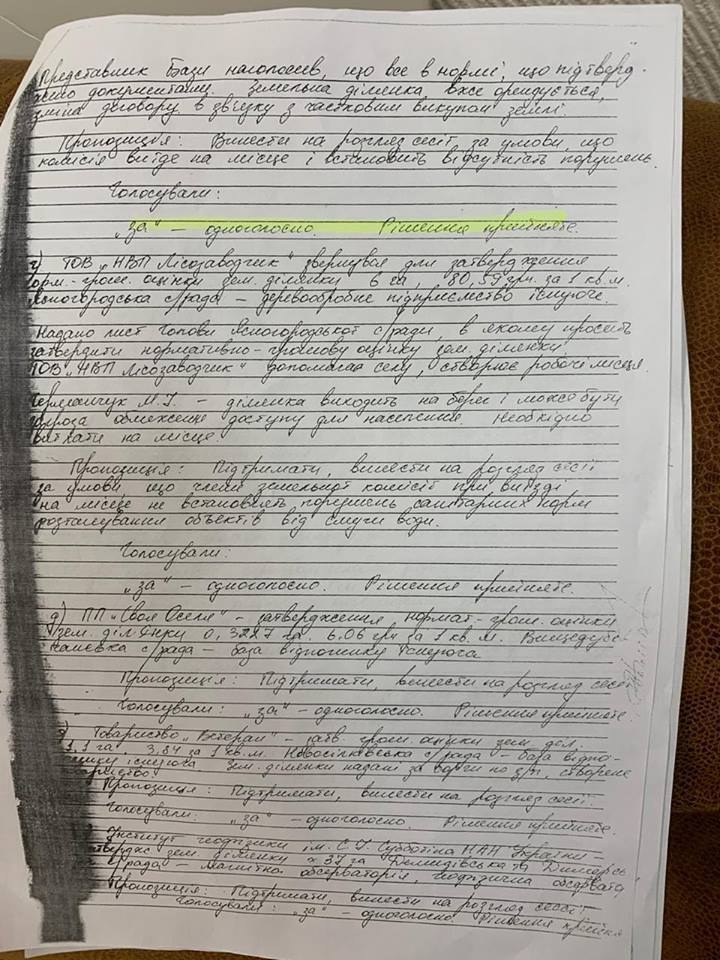 Представник бази наголосив, що все в нормі, що підтверд-
жено документами. Земельна ділянка вже орендується,
зміна договору в звізку з частковим викупом землі.
Пропозиція: Винести на розгляд сесії, за умови, що
комісія виїде на місце і встановить відсутність порушень.
Голосували:
„за“ – одноголосно. Рішення прийняте.
г) ТОВ „НВП Лісозаводчик“ звернувся для затвердження
норм.-грош. оцінки зем. ділянки 6 га, 80,59 грн. за 1 кв.м.
Ясногородська с/рада – деревообробне підприємство існуюче.
Надано лист голови Ясногородської с/ради, в якому просить
затвердити нормативно-грошову оцінку зем. ділянки.
ТОВ „НВП Лісозаводчик“ допомагає селу, створює робочі місця.
М.І. – ділянка виходить на берег і може бути
загроза обмеження доступу для населення. Необхідно
виїхати на місце.
Пропозиція: Підтримати, винести на розгляд сесії
за умови що члени земельної комісії при виїзді
на місце не встановлять порушень санітарних норм
розташування объєктів від смуги води.
Голосували:
„за“ – одноголосно. Рішення прийняте.
д) ПП „Своя Оселя“ – затвердження нормат.-грош. оцінки
зем. ділянки 0, га. 6.06 грн за 1 кв.м.
с/рада – база відпочинку існуюча
Пропозиція: Підтримати, винести на розгляд сесії
Голосували: „за“ – одноголосно. Рішення прийняте
Товариство „Ветеран“ – затв. грош. оцінки зем. діл.
1,1 га, 3,84 за 1 кв.м. Новосілківська с/рада – база відпо-
чинку існуюча. Зем. ділянки надані за створене
товариство.
Пропозиція: Підтримати, винести на розгляд сесії.
Голосували: „за“ – одноголосно. Рішення прийняте.
Інститут геофізики ім. С.І. Субботіна НАН України –
зем. ділянку 37 га Демидівська та Димерсь-
ка с/рада – магнітна обсерваторія, геофізична обсервато
Пропозиція: Підтримати, винести на розгляд сесії
Голосували: „за“ – одноголосно. Рішення прийня